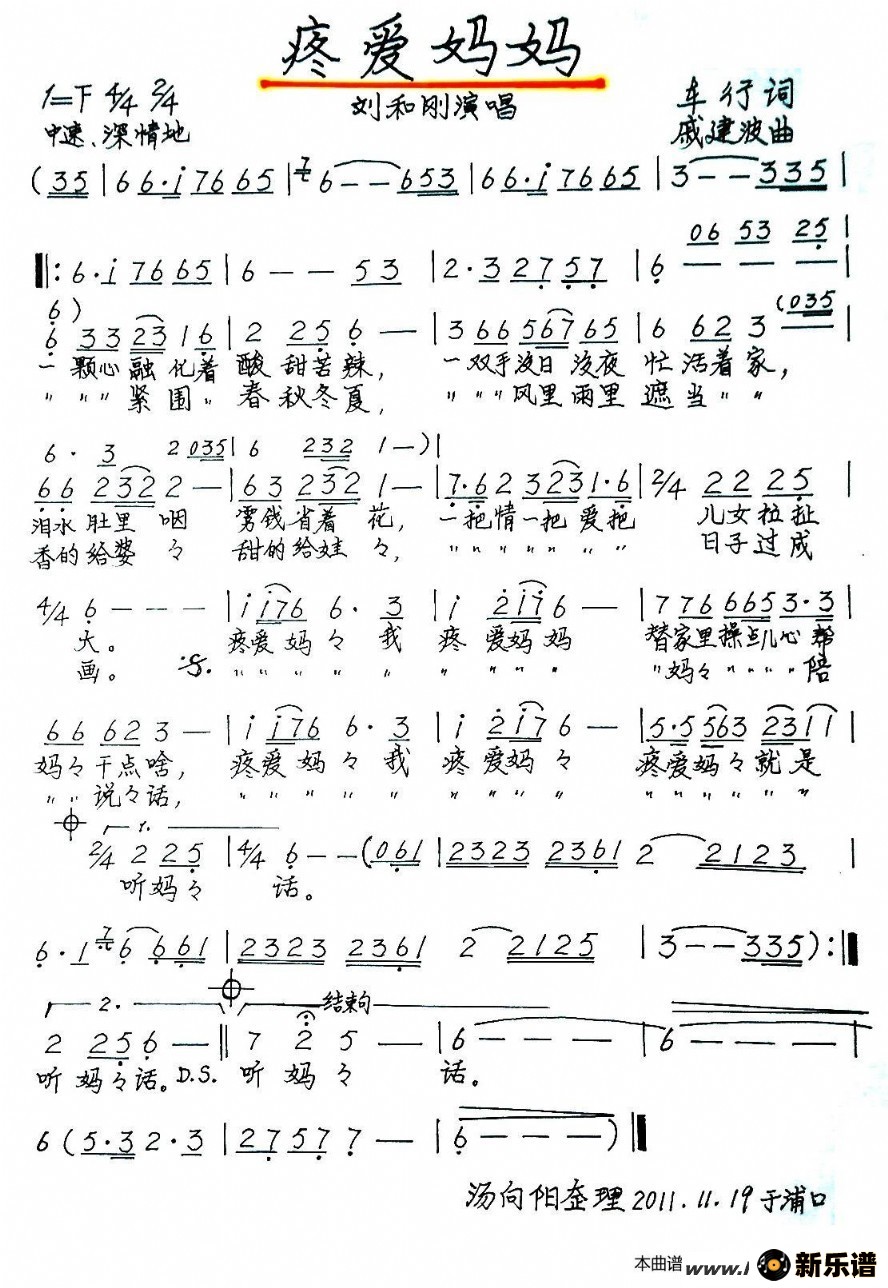 疼爱妈妈
1=F 4/4 2/4
刘和刚演唱
车行词
中速、深情地
戚建波曲
(35|66·i7665|6--653|66·i7665|3--335|
06 53 25|
‖:6·i7665|6--53|2·32757|6---|
6)
(035
6332316|2256-|36656765|6623-|
一颗心融化着酸甜苦辣,一双手没日没夜忙活着家,
〃〃〃紧围〃春秋冬夏,〃〃〃风里雨里遮当〃〃
6·3 2035|6 232 1-)|
662322-|632321-|7·623231·6|2/4 2225|
泪水肚里咽 雾钱省着花,一把情一把爱把儿女拉扯
香的给婆々 甜的给娃々,〃〃〃〃〃〃日子过成
4/4 6---|ii766·3|i2i76-|7766653·3|
大。 疼爱妈々我疼爱妈妈 替家里操点儿心帮
画。 :S. 〃〃〃〃〃〃〃〃〃 〃妈々〃〃〃〃陪
66623-|ii766·3|i2i76-|5·55632311|
妈々干点啥,疼爱妈々我疼爱妈々 疼爱妈々就是
〃〃说々话,〃〃〃〃〃〃〃〃〃 〃〃〃〃〃〃
1.
2/4 225|4/4 6--(061|23232361 2 2123|
听妈々 话。
6·176 661|23232361 2 2125|3--335):‖
2. 结束句
2256-‖725-|6---|6---|
听妈々话。D.S. 听妈々 话。
6(5·32·3|27577-|6---)‖
汤向阳整理2011.11.19于浦口
本曲谱 www. 新乐谱